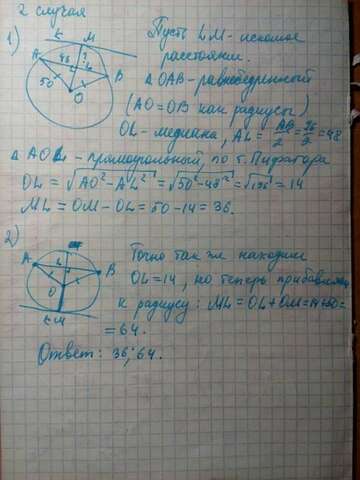 2 случая
1)
K M
Пусть LM - искомое
расстояние.
A 48 ? L B
50 O
△ OAB - равнобедренный
(AO = OB как радиусы)
OL - медиана, AL = AB/2 = 96/2 = 48
△ AOL - прямоугольный, по т. Пифагора
OL = √(AO² - AL²) = √(50² - 48²) = √196 = 14
ML = OM - OL = 50 - 14 = 36.
2)
A L B
O
K M
Точно так же находим
OL = 14, но теперь прибавляем
к радиусу: ML = OL + OM = 14 + 50 =
= 64.
Ответ: 36; 64.